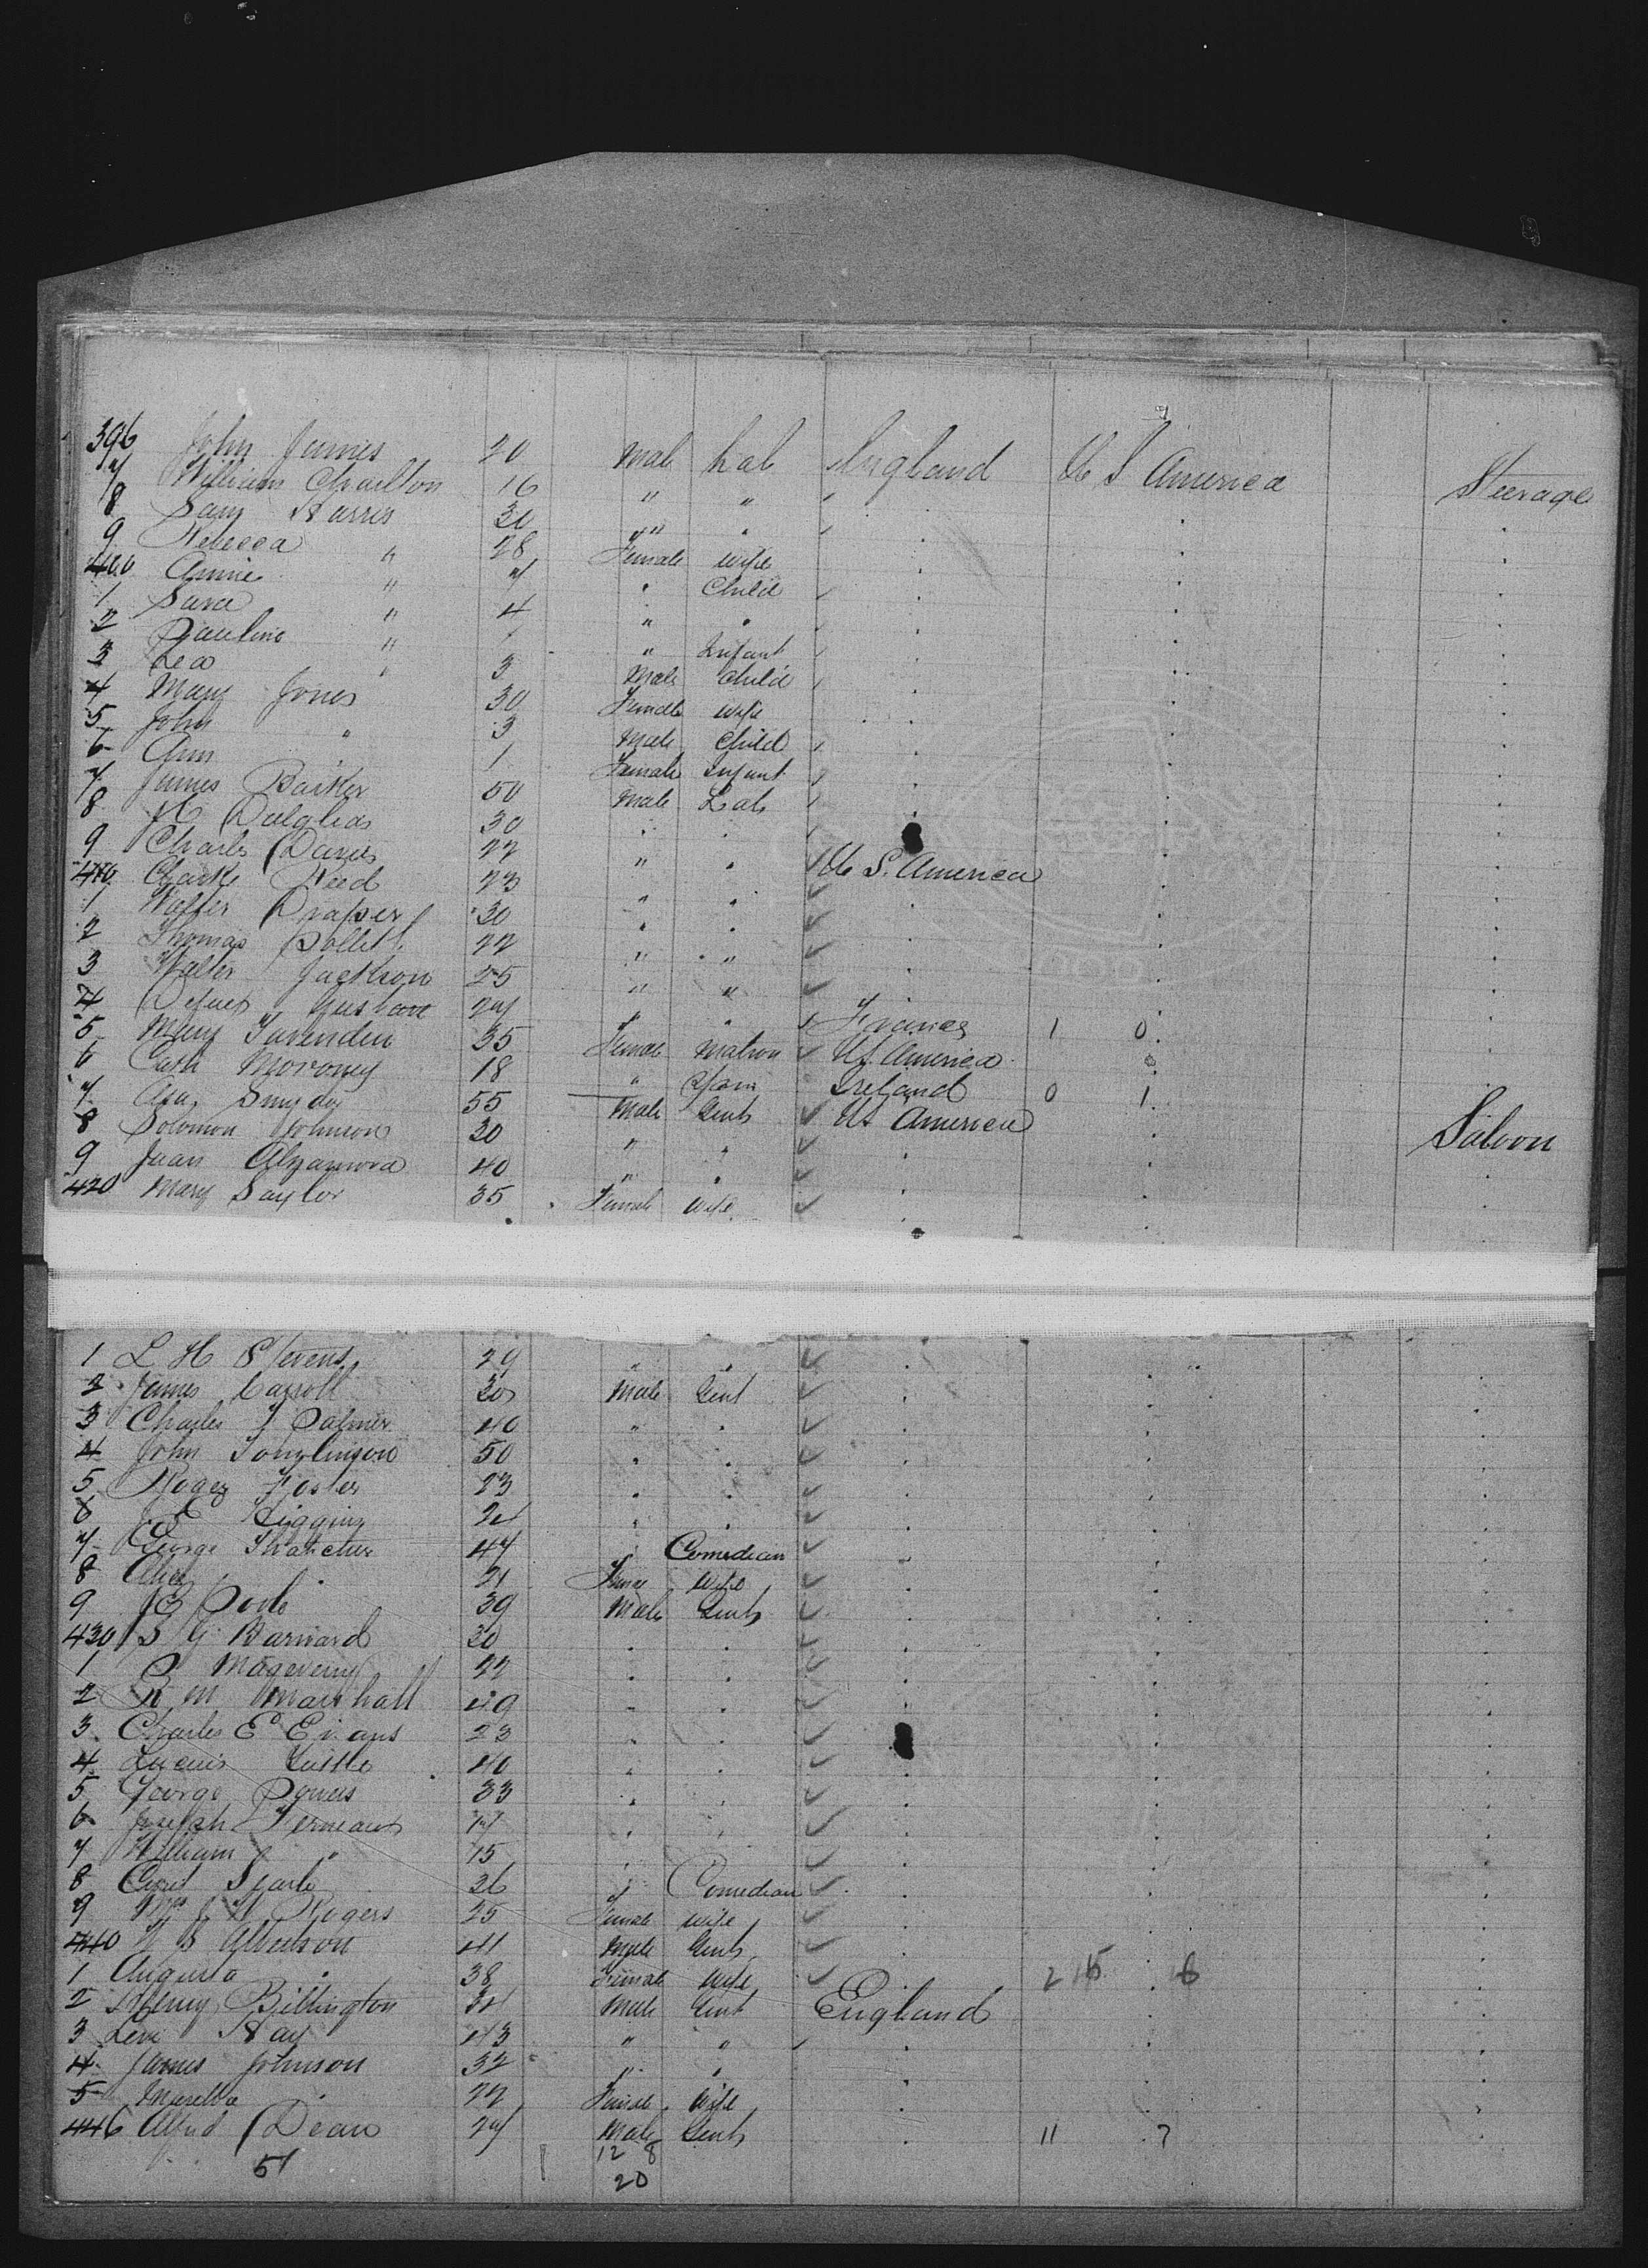 396 John James 20 Male Lab England U S America Steerage
7 William Charlton 16 " "
8 Sam Harris 30 " "
9 Rebecca " 28 Female wife
400 Annie " 7 " Child
1 Sara " 4 " "
2 Pauline " 1 " Infant
3 Leo " 3 Male Child
4 Mary Jones 30 Female wife
5 John " 3 Male Child
6 Ann 1 Female Infant
7 James Barker 50 Male Lab
8 30
9 Charles Davis 22 " " U S. America
410 Charles Reed 23 " "
1 Walter Draper 30 " "
2 Thomas 22 " "
3 Walter Jackson 25 " "
4 Gustave 27 " " France 1 0
5 Mary 35 Female Matron U S. America
6 Cath Moroney 18 " Ireland 0 1
7 Asa Snyder 55 Male Gent U S America Saloon
8 Solomon Johnson 30 " "
9 Juan Alzamora 40 " "
420 Mary Saylor 35 Female wife
1 L H Stevens 29 " "
2 James Carroll 30 Male Gent
3 Charles J Palmer 40 " "
4 John Tomlinson 50 " "
5 Roger Foster 23 " "
6 J E Higgins
7 George Thatcher 47 " Comedian
8 Alice " 21 Female wife
9 39 Male Gent
430 S G Barnard 30
1 P Mageveny 22
2 R M Marshall 49
3 Charles E Evans 23
4 Lucius Tuttle 40
5 George Powers 33
6 Joseph 17
7 William " 15
8 Cool 36 " Comedian
9 Mrs J W Rogers 25 Female wife
440 Albertson 41 Male Gent
1 Augusta " 38 Female wife
2 Henry Billington 34 Male Gent England
3 Levi Hay 43 " "
4 James Johnson 32 " "
5 22 Female Wife
446 Alfred Dean 27 Male Gent 11 7
51 12 8
20